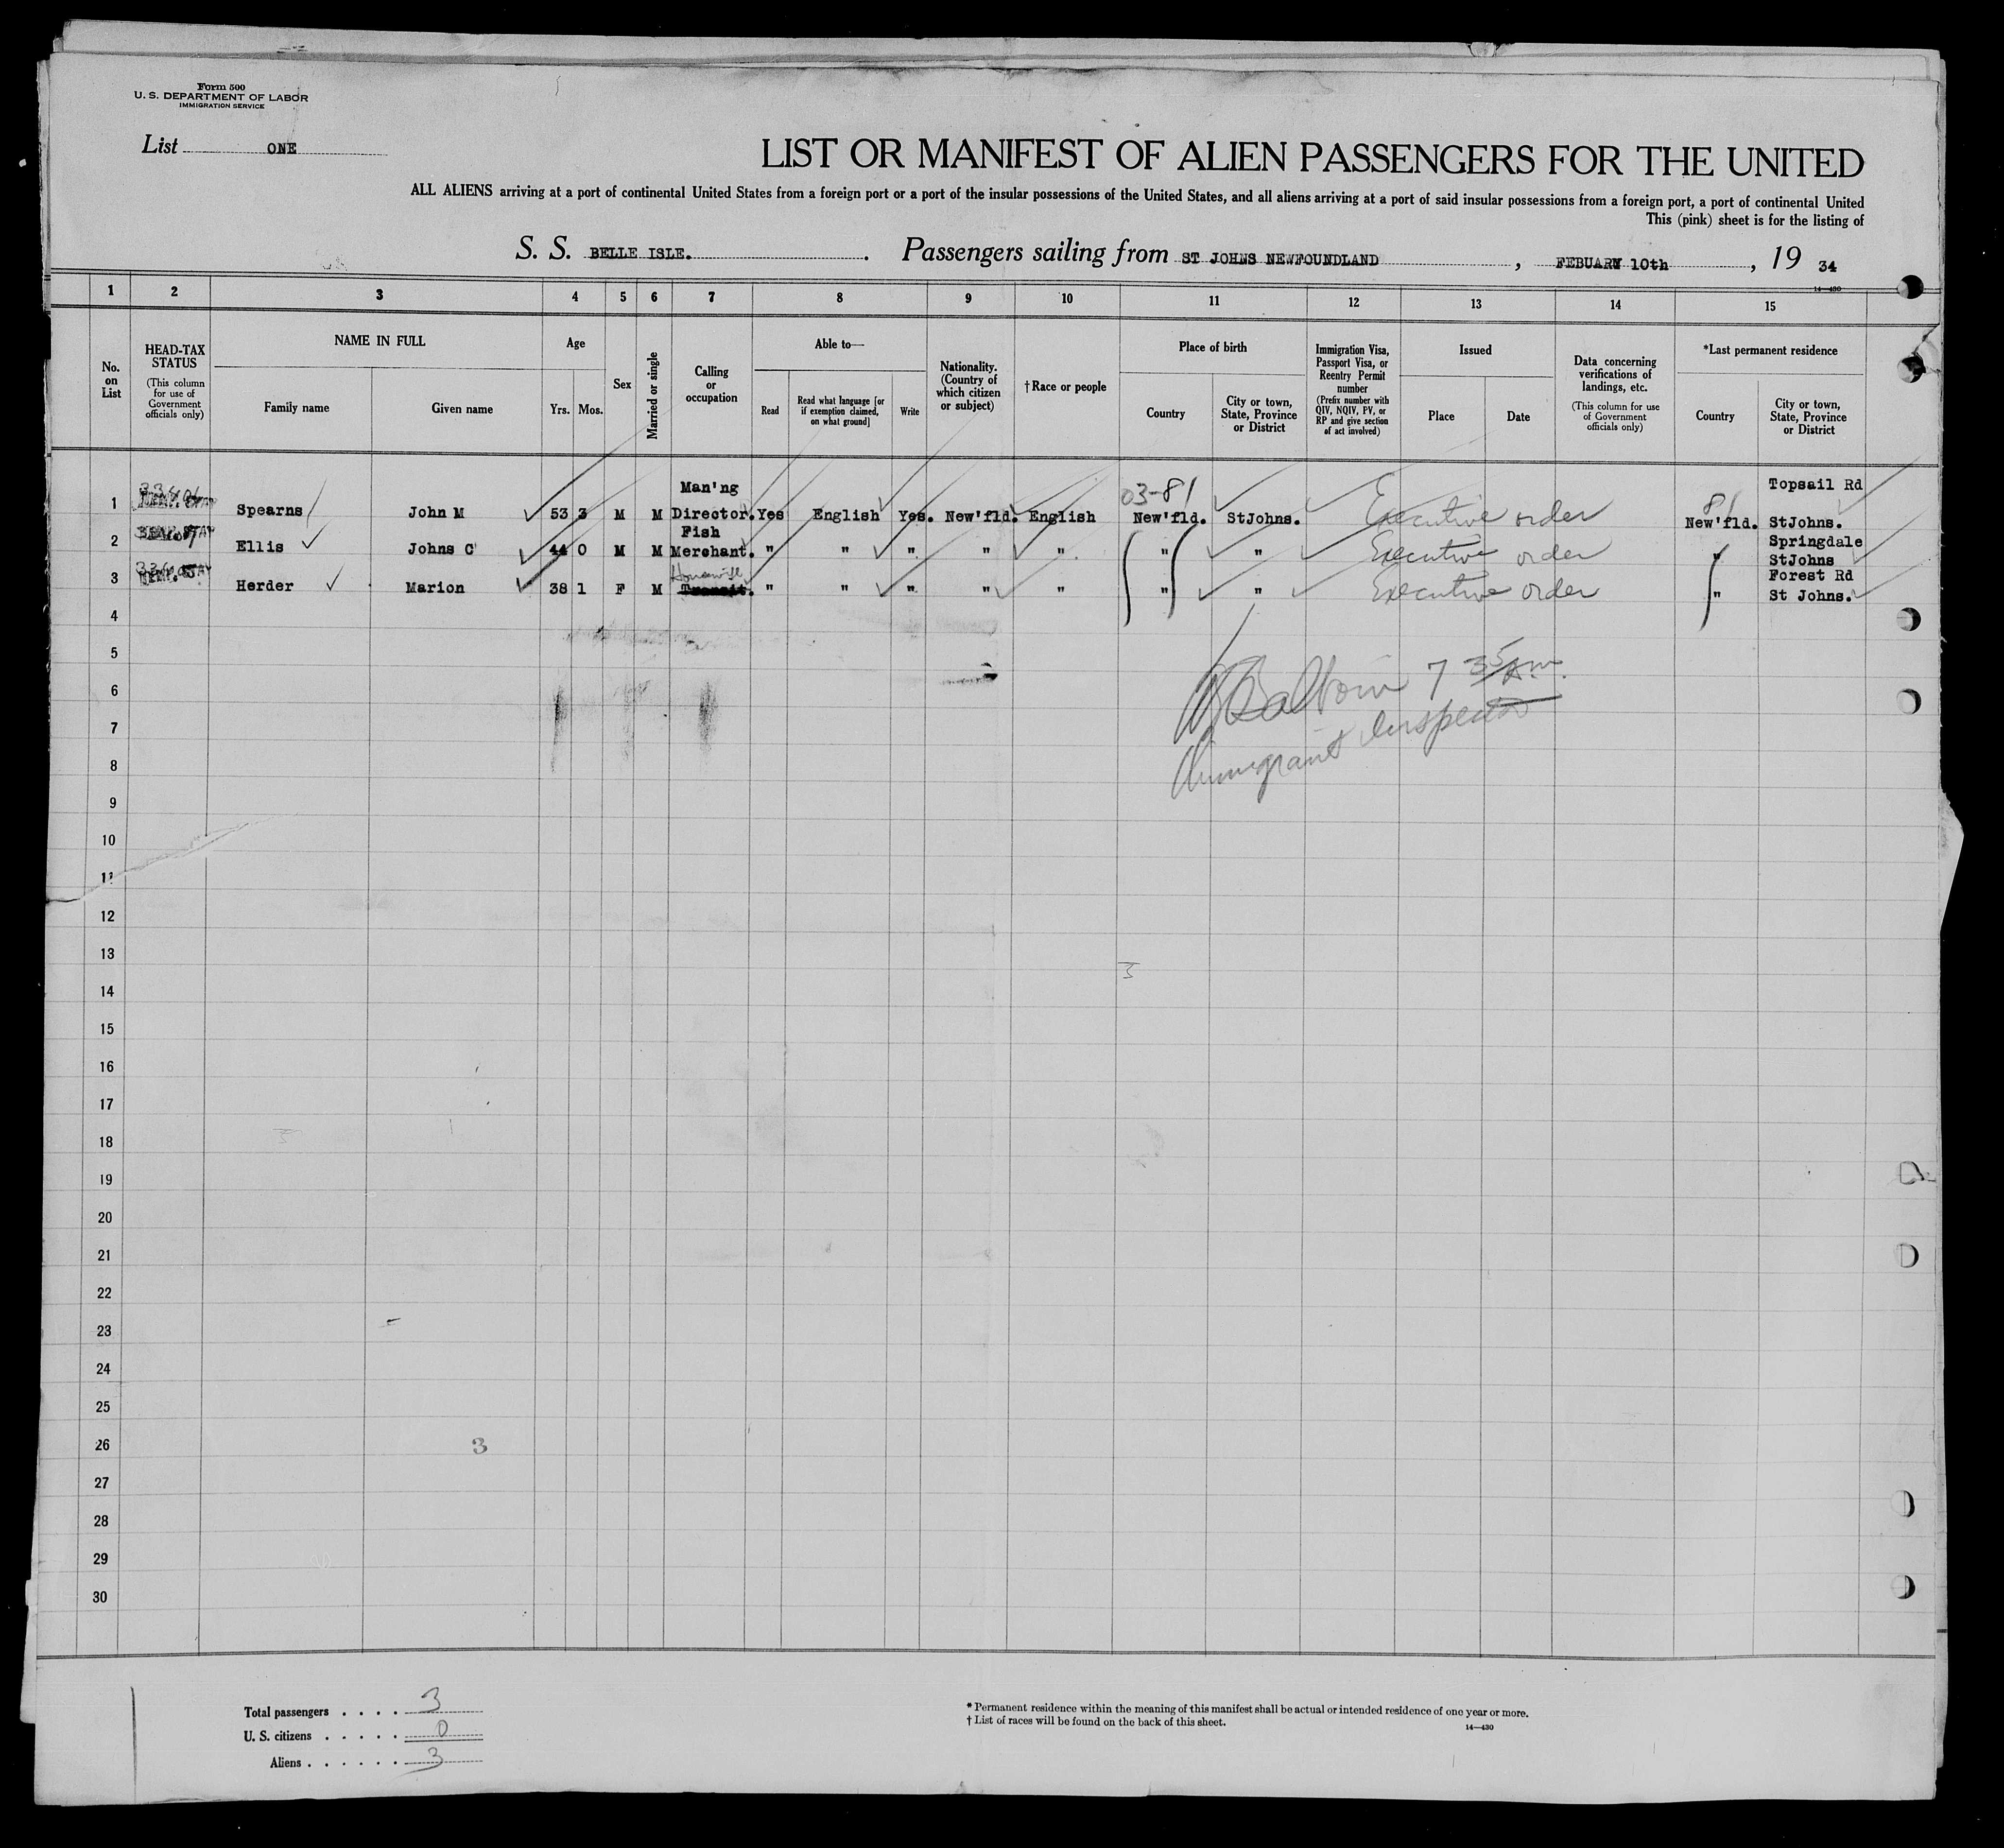 Form 500
U. S. DEPARTMENT OF LABOR
IMMIGRATION SERVICE
List ONE
LIST OR MANIFEST OF ALIEN PASSENGERS FOR THE UNITED
ALL ALIENS arriving at a port of continental United States from a foreign port or a port of the insular possessions of the United States, and all aliens arriving at a port of said insular possessions from a foreign port, a port of continental United
This (pink) sheet is for the listing of
S. S. BELLE ISLE. . Passengers sailing from ST JOHNS NEWFOUNDLAND , FEBUARY 10th , 19 34
14—430
1 2 3 4 5 6 7 8 9 10 11 12 13 14 15
No. on List
HEAD-TAX STATUS
(This column for use of Government officials only)
NAME IN FULL
Family name
Given name
Age
Yrs. Mos.
Sex
Married or single
Calling or occupation
Able to—
Read
Read what language [or if exemption claimed, on what ground]
Write
Nationality. (Country of which citizen or subject)
†Race or people
Place of birth
Country
City or town, State, Province or District
Immigration Visa, Passport Visa, or Reentry Permit number
(Prefix number with QIV, NQIV, PV, or RP and give section of act involved)
Issued
Place
Date
Data concerning verifications of landings, etc.
(This column for use of Government officials only)
*Last permanent residence
Country
City or town, State, Province or District
Man'ng 03-81 81 Topsail Rd
1 Spearns John M 53 3 M M Director. Yes English Yes. New'fld. English New'fld. StJohns. Executive order New'fld. StJohns.
Fish Springdale
2 Ellis Johns C 44 0 M M Merchant. " " " " " " " Executive order " StJohns
Housewife Forest Rd
3 Herder Marion 38 1 F M Transit. " " " " " " " Executive order " St Johns.
4
5
6
7 35 A.m.
7
Immigrant Inspector
8
9
10
11
12
13
3
14
15
16
17
18
19
20
21
22
23
24
25
26
3
27
28
29
30
Total passengers . . . . 3
U. S. citizens . . . . . 0
Aliens . . . . . . 3
* Permanent residence within the meaning of this manifest shall be actual or intended residence of one year or more.
† List of races will be found on the back of this sheet.
14—430